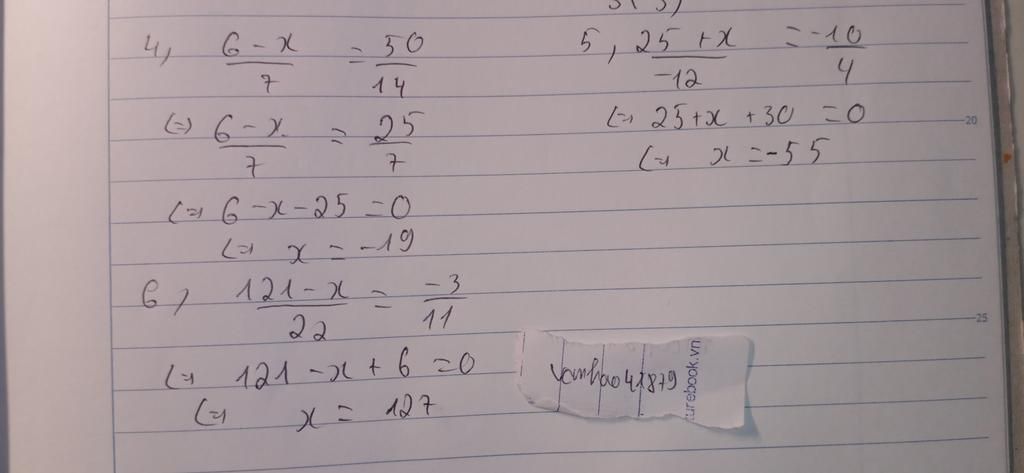 4, (6-x)/7 = 50/14
(=) (6-x)/7 = 25/7
(=) 6-x-25 = 0
(=) x = -19
5, (25+x)/-12 = -10/4
(=) 25+x+30 = 0
(=) x = -55
6, (121-x)/22 = -3/11
(=) 121-x+6 = 0
(=) x = 127
20
25
vanhao41879
urebook.vn